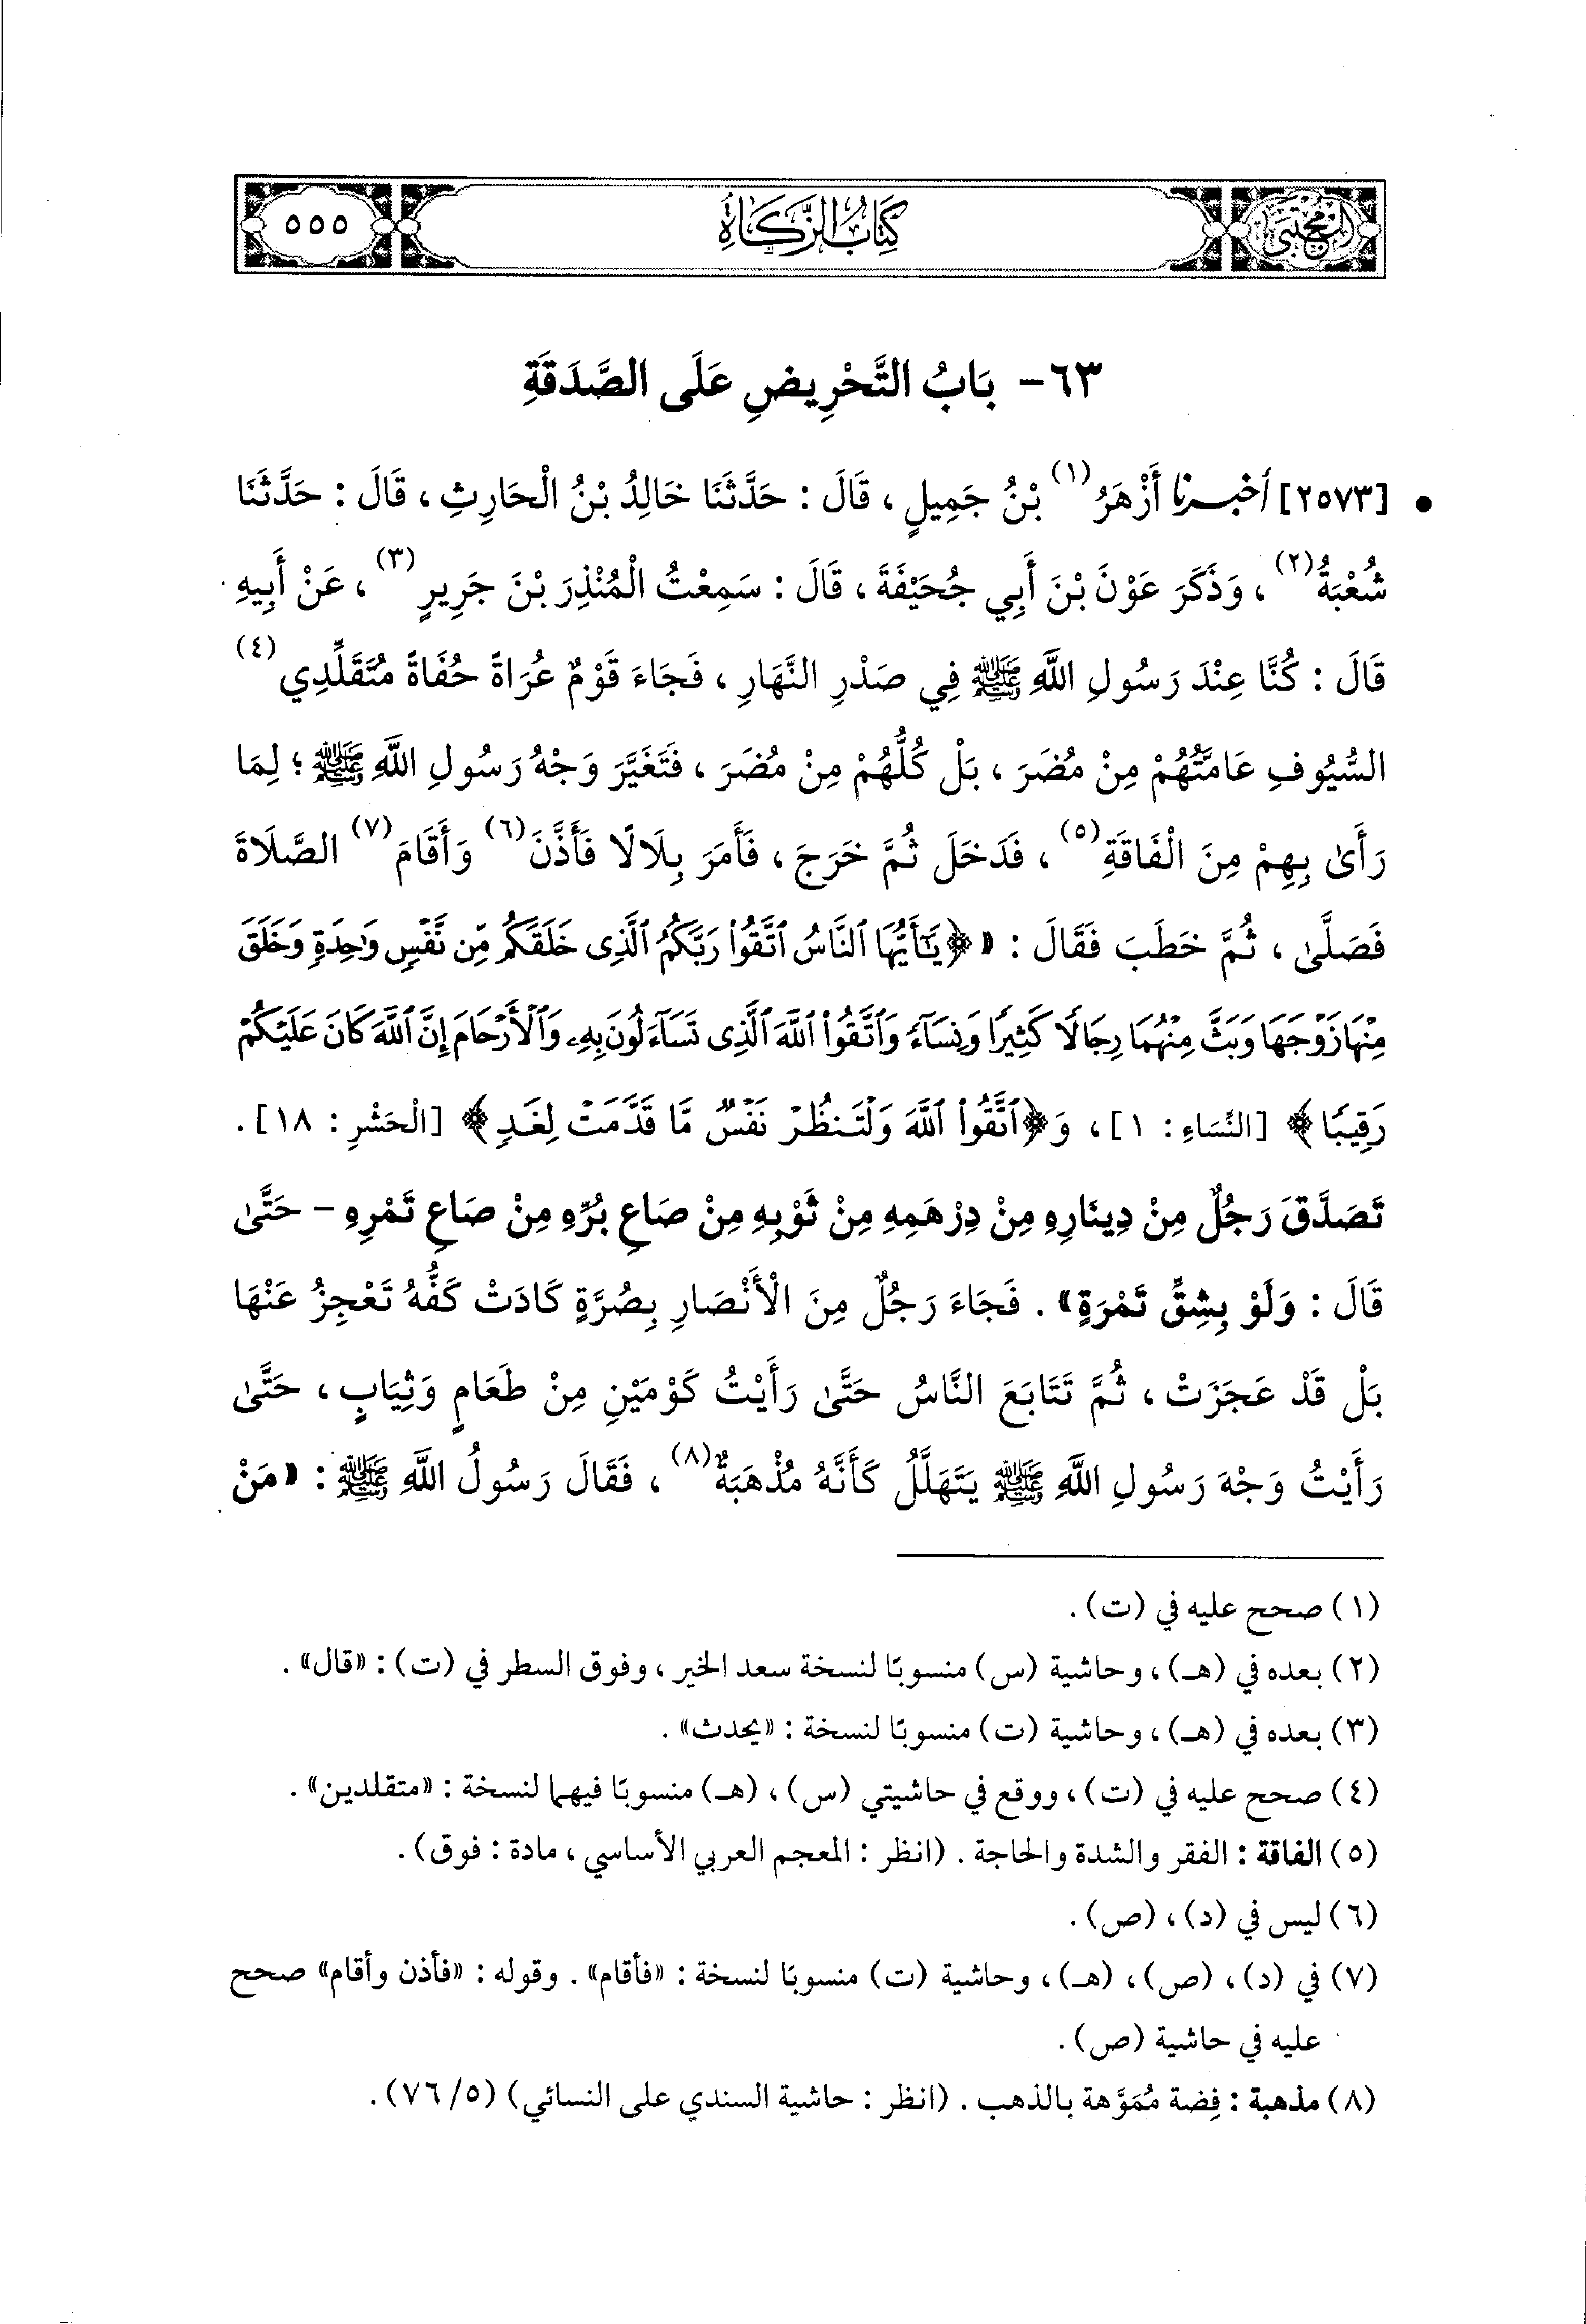 المجتبى
كِتَابُ الزَّكَاةِ
٥٥٥
٦٣- بَابُ التَّحْرِيضِ عَلَى الصَّدَقَةِ
• [٢٥٧٣] أخبرنا أَزْهَرُ(١) بْنُ جَمِيلٍ، قَالَ: حَدَّثَنَا خَالِدُ بْنُ الْحَارِثِ، قَالَ: حَدَّثَنَا
شُعْبَةُ(٢)، وَذَكَرَ عَوْنَ بْنَ أَبِي جُحَيْفَةَ، قَالَ: سَمِعْتُ الْمُنْذِرَ بْنَ جَرِيرٍ(٣)، عَنْ أَبِيهِ
قَالَ: كُنَّا عِنْدَ رَسُولِ اللَّهِ ﷺ فِي صَدْرِ النَّهَارِ، فَجَاءَ قَوْمٌ عُرَاةً حُفَاةً مُتَقَلِّدِي(٤)
السُّيُوفِ عَامَّتُهُمْ مِنْ مُضَرَ، بَلْ كُلُّهُمْ مِنْ مُضَرَ، فَتَغَيَّرَ وَجْهُ رَسُولِ اللَّهِ ﷺ؛ لِمَا
رَأَىٰ بِهِمْ مِنَ الْفَاقَةِ(٥)، فَدَخَلَ ثُمَّ خَرَجَ، فَأَمَرَ بِلَالًا فَأَذَّنَ(٦) وَأَقَامَ(٧) الصَّلَاةَ
فَصَلَّىٰ، ثُمَّ خَطَبَ فَقَالَ: «﴿يَٰٓأَيُّهَا ٱلنَّاسُ ٱتَّقُوا۟ رَبَّكُمُ ٱلَّذِى خَلَقَكُم مِّن نَّفْسٍ وَٰحِدَةٍ وَخَلَقَ
مِنْهَا زَوْجَهَا وَبَثَّ مِنْهُمَا رِجَالًا كَثِيرًا وَنِسَآءً وَٱتَّقُوا۟ ٱللَّهَ ٱلَّذِى تَسَآءَلُونَ بِهِۦ وَٱلْأَرْحَامَ إِنَّ ٱللَّهَ كَانَ عَلَيْكُمْ
رَقِيبًا﴾ [النِّسَاءِ: ١]، وَ﴿ٱتَّقُوا۟ ٱللَّهَ وَلْتَنظُرْ نَفْسٌ مَّا قَدَّمَتْ لِغَدٍ﴾ [الْحَشْرِ: ١٨].
تَصَدَّقَ رَجُلٌ مِنْ دِينَارِهِ مِنْ دِرْهَمِهِ مِنْ ثَوْبِهِ مِنْ صَاعِ بُرِّهِ مِنْ صَاعِ تَمْرِهِ - حَتَّىٰ
قَالَ: وَلَوْ بِشِقِّ تَمْرَةٍ». فَجَاءَ رَجُلٌ مِنَ الْأَنْصَارِ بِصُرَّةٍ كَادَتْ كَفُّهُ تَعْجِزُ عَنْهَا
بَلْ قَدْ عَجَزَتْ، ثُمَّ تَتَابَعَ النَّاسُ حَتَّىٰ رَأَيْتُ كَوْمَيْنِ مِنْ طَعَامٍ وَثِيَابٍ، حَتَّىٰ
رَأَيْتُ وَجْهَ رَسُولِ اللَّهِ ﷺ يَتَهَلَّلُ كَأَنَّهُ مُذْهَبَةٌ(٨)، فَقَالَ رَسُولُ اللَّهِ ﷺ: «مَنْ
(١) صحح عليه في (ت).
(٢) بعده في (هـ)، وحاشية (س) منسوبًا لنسخة سعد الخير، وفوق السطر في (ت): «قال».
(٣) بعده في (هـ)، وحاشية (ت) منسوبًا لنسخة: «يحدث».
(٤) صحح عليه في (ت)، ووقع في حاشيتي (س)، (هـ) منسوبًا فيهما لنسخة: «متقلدين».
(٥) الفاقة: الفقر والشدة والحاجة. (انظر: المعجم العربي الأساسي، مادة: فوق).
(٦) ليس في (د)، (ص).
(٧) في (د)، (ص)، (هـ)، وحاشية (ت) منسوبًا لنسخة: «فأقام». وقوله: «فأذن وأقام» صحح
عليه في حاشية (ص).
(٨) مذهبة: فِضة مُمَوَّهة بالذهب. (انظر: حاشية السندي على النسائي) (٧٦/٥).